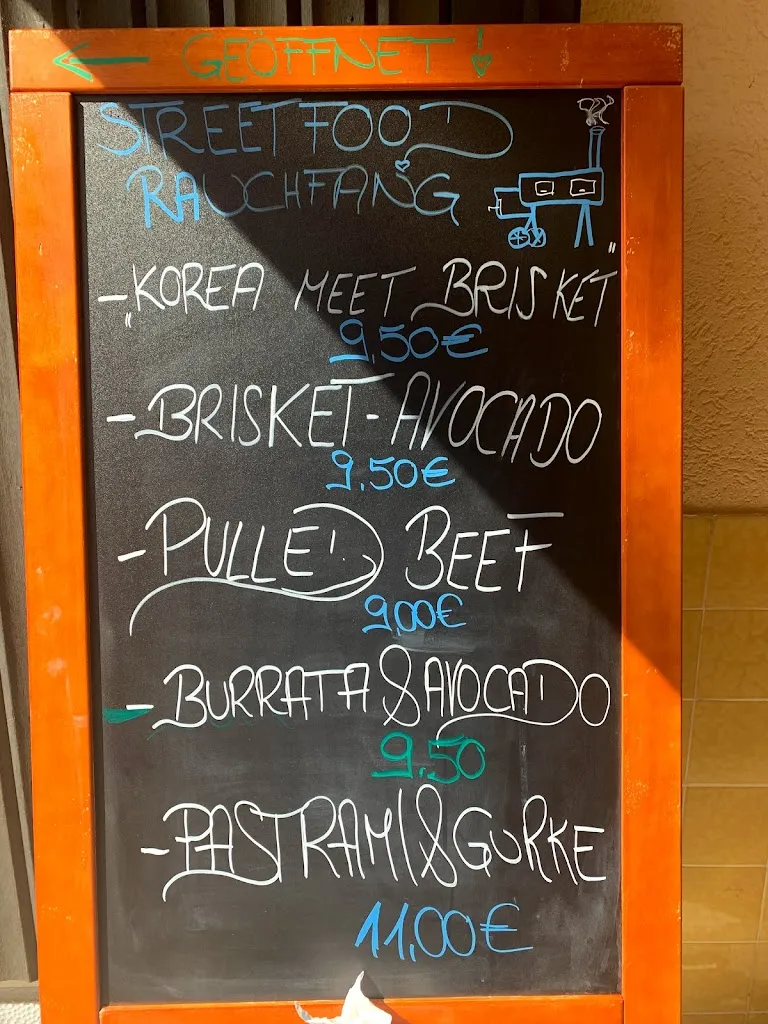 ← GEÖFFNET ↓
STREETFOOD
RAUCHFANG
- "KOREA MEET BRISKET"
9,50€
- BRISKET-AVOCADO
9,50€
- PULLED BEEF
9,00€
- BURRATA & AVOCADO
9,50
- PASTRAMI & GURKE
11,00€